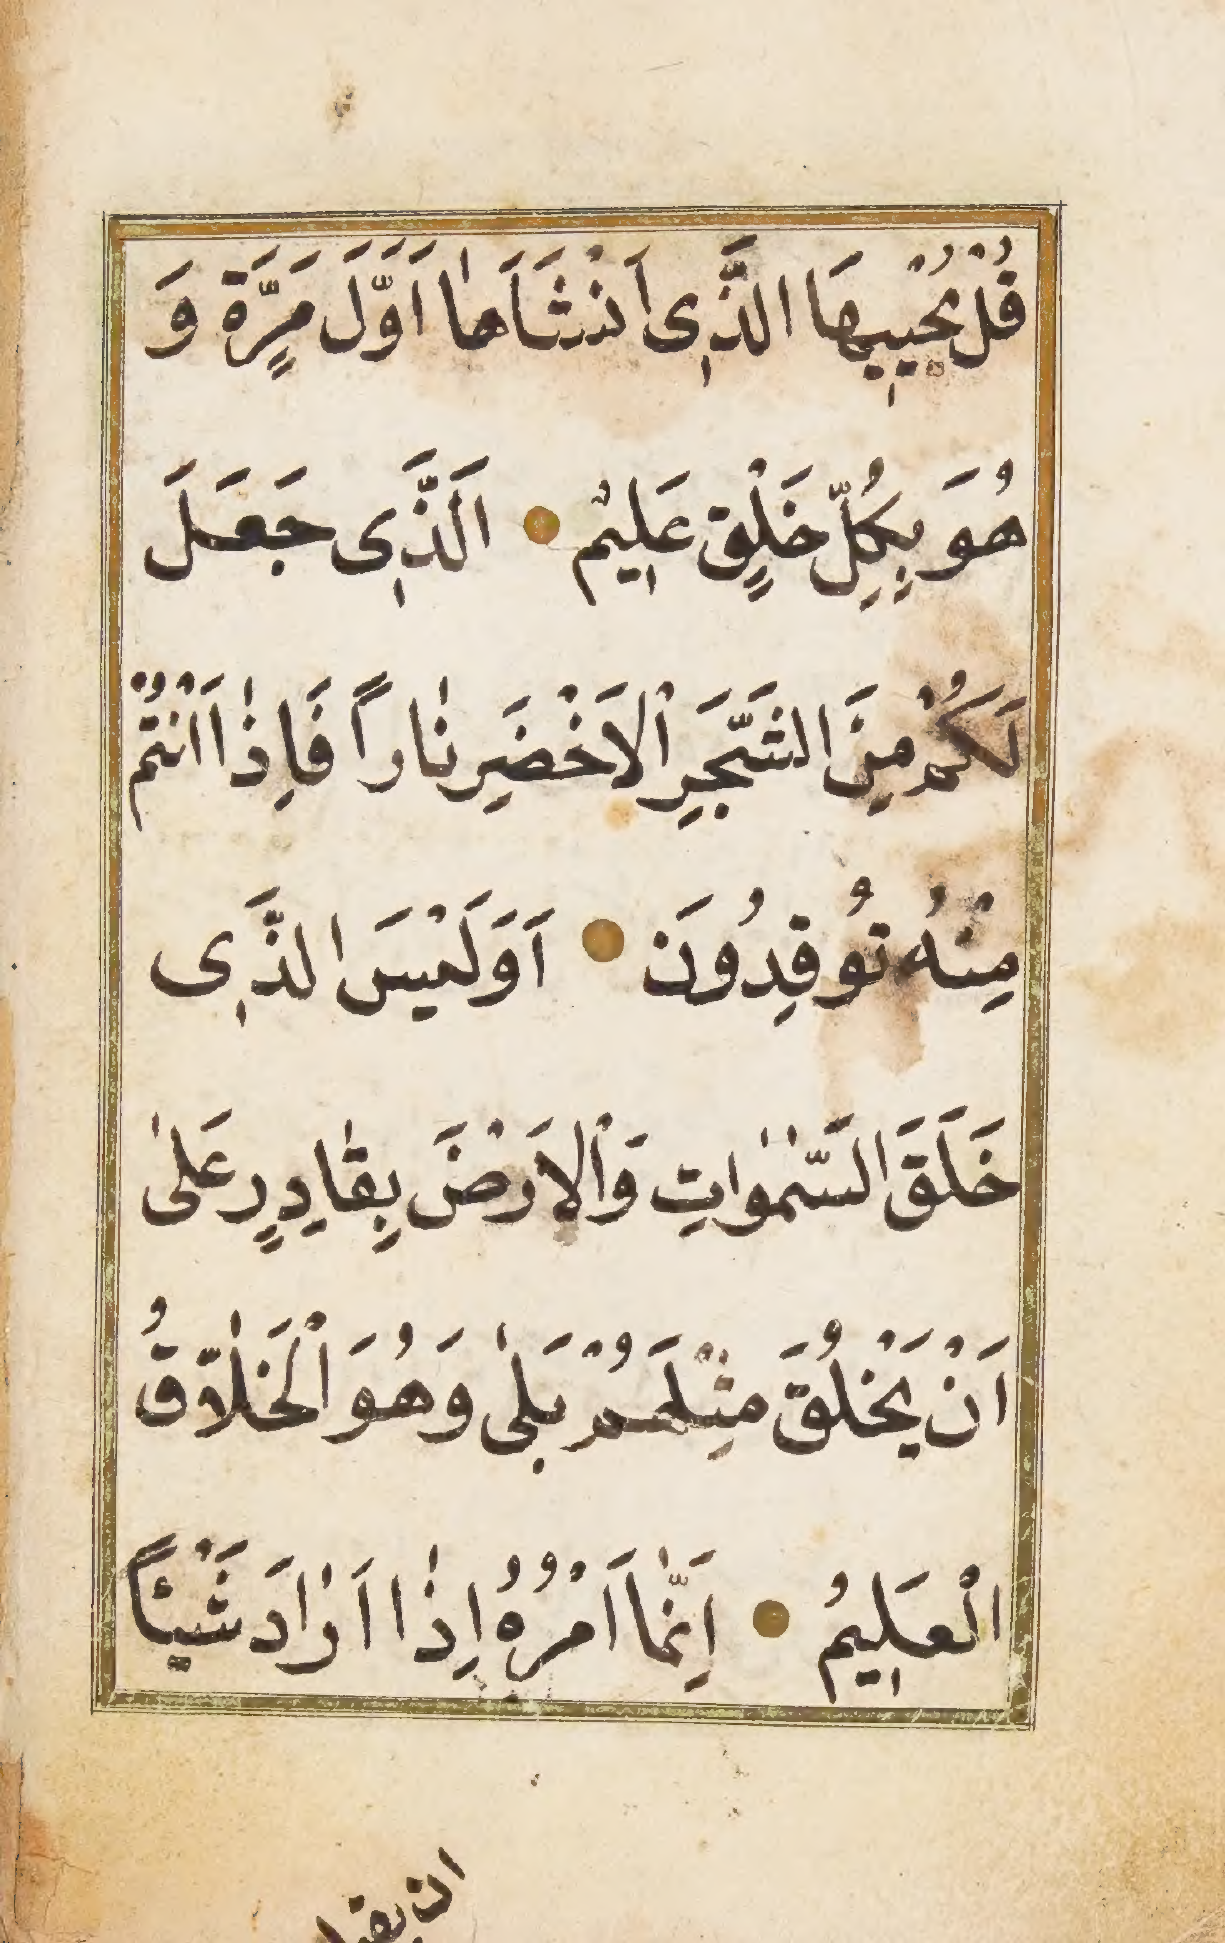 قُلْ يُحْيٖيهَا الَّذٖى اَنْشَاَهٰا اَوَّلَ مَرَّةٍ وَ
هُوَ بِكُلِّ خَلْقٍ عَلٖيمٌ ۝ اَلَّذٖى جَعَلَ
لَكُمْ مِنَ الشَّجَرِ الْاَخْضَرِ نٰاراً فَاِذٰا اَنْتُمْ
مِنْهُ تُوقِدُونَ ۝ اَوَلَيْسَ الَّذٖى
خَلَقَ السَّمٰوٰاتِ وَالْاَرْضَ بِقٰادِرٍ عَلىٰ
اَنْ يَخْلُقَ مِثْلَهُمْ بَلىٰ وَهُوَ الْخَلّٰاقُ
الْعَلٖيمُ ۝ اِنَّمٰا اَمْرُهُ اِذٰا اَرٰادَ شَيْئاً
ان يقول